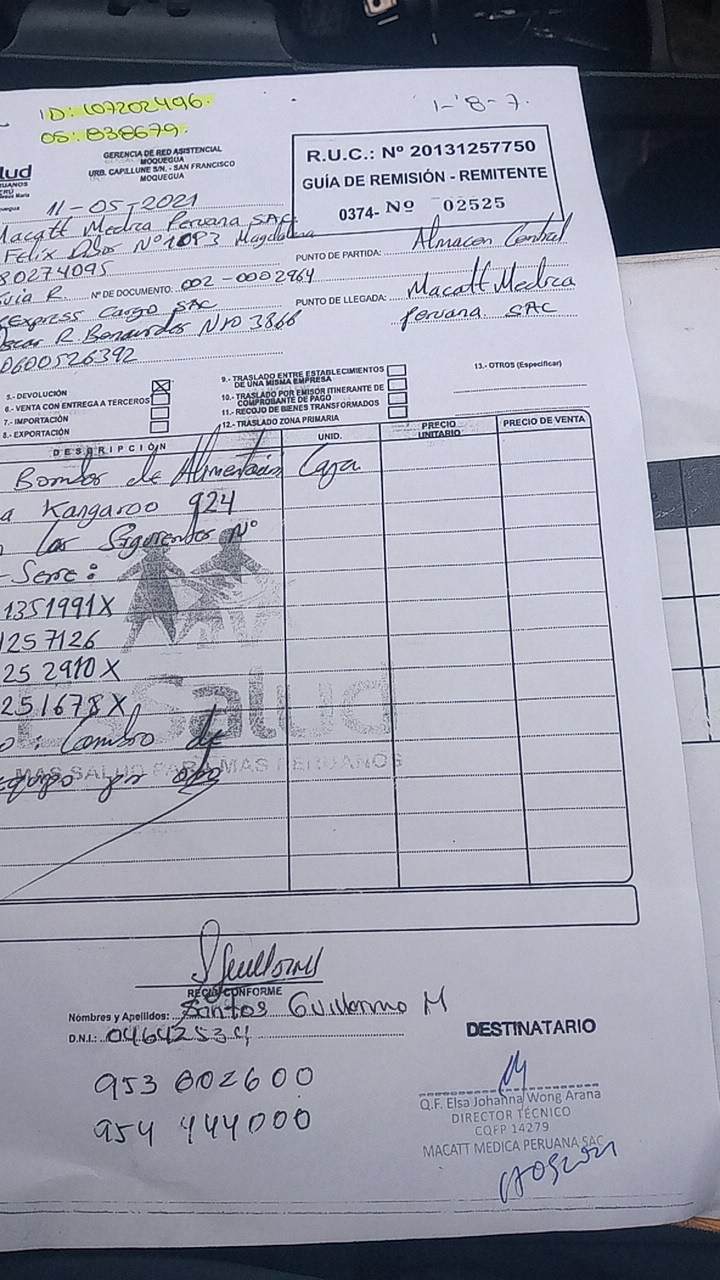 ID: 107202496.
OS: 838679.
1-8-7.
GERENCIA DE RED ASISTENCIAL
MOQUEGUA
URB. CAPILLUNE S/N. - SAN FRANCISCO
MOQUEGUA
lud
R.U.C.: Nº 20131257750
GUÍA DE REMISIÓN - REMITENTE
0374- Nº 02525
11-05-2021
Macatt Medica Peruana SAC
Felix Dibos Nº 1093 Magdalena
80274095
PUNTO DE PARTIDA: Almacen Central
Guía R. Nº DE DOCUMENTO: 002-0002964
PUNTO DE LLEGADA: Macatt Medica
Peruana SAC
Express Cargo SAC
scar R Benavides Nº 3866
0600526392
5.- DEVOLUCIÓN X
6.- VENTA CON ENTREGA A TERCEROS
7.- IMPORTACIÓN
8.- EXPORTACIÓN
9.- TRASLADO ENTRE ESTABLECIMIENTOS
DE UNA MISMA EMPRESA
10.- TRASLADO POR EMISOR ITINERANTE DE
COMPROBANTE DE PAGO
11.- RECOJO DE BIENES TRANSFORMADOS
12.- TRASLADO ZONA PRIMARIA
13.- OTROS (Especificar)
DESCRIPCIÓN UNID. PRECIO UNITARIO PRECIO DE VENTA
Bombas de Alimentación Caja
a Kangaroo 924
los Siguientes Nº
Serie:
1351991X
1257126
252910X
251678X
o: Cambio de
equipo por otro
EsSalud
MAS SALUD PARA MAS PERUANOS
RECIBÍ CONFORME
Nombres y Apellidos: Santos Guillermo M
D.N.I.: 04642534
953 802600
954 444000
DESTINATARIO
Q.F. Elsa Johanna Wong Arana
DIRECTOR TÉCNICO
CQFP 14279
MACATT MEDICA PERUANA SAC